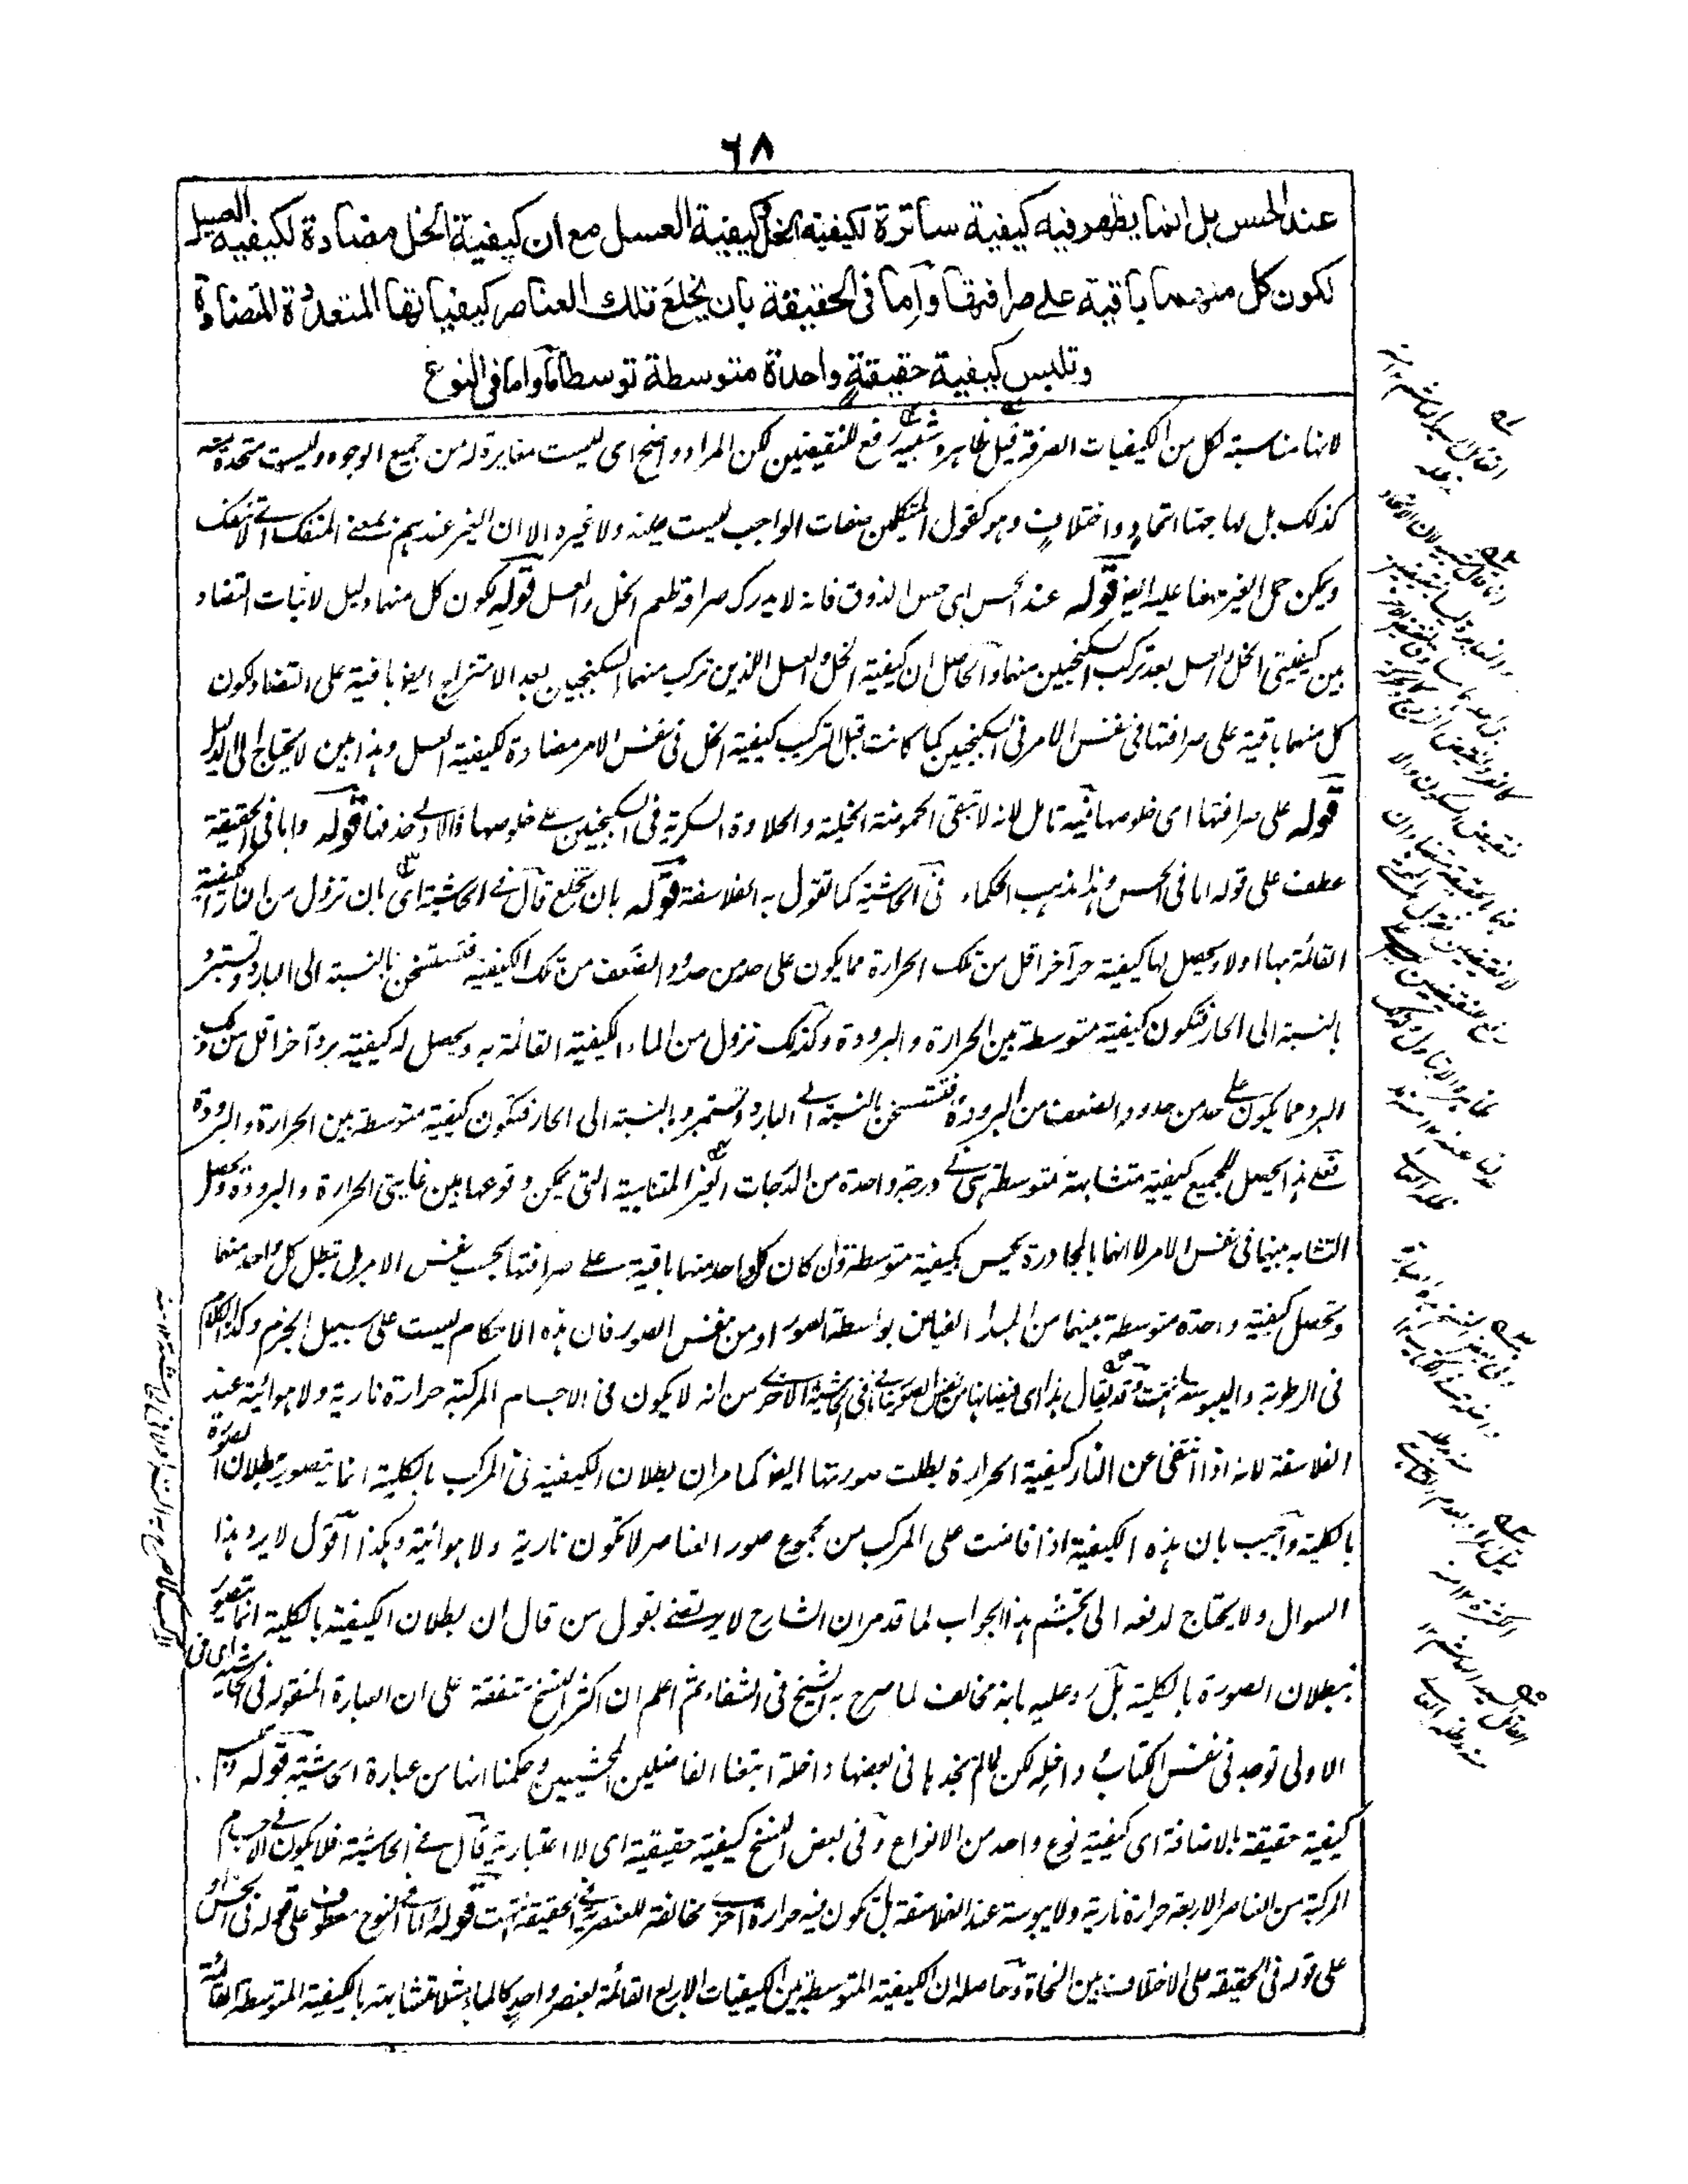 ٦٨
عند الحس بل انما يظهر فيه كيفية ساترة لكيفية الخل وكيفية العسل مع ان كيفية الخل مضادة لكيفية العسل
لكون كل منهما باقية على صرافتها وأما في الحقيقة بان يخلع تلك العناصر كيفياتها المتعددة المتضادة
وتلبس كيفية حقيقة واحدة متوسطة توسطا ما واما في النوع
لانها مناسبة لكل من الكيفيات الصرفة قيل ظاهره شبيه رفع للنقيضين لكن المراد واضح اى ليست مغايرة له من جميع الوجوه وليست متحدة معه
كذلك بل لها جهتا اتحاد واختلاف وهو كقول المتكلمين صفات الواجب ليست عينه ولا غيره الا ان الغير عندهم بمعنى المنفك
ويمكن حمل الغير ههنا عليه ايضا قوله عند الحس اى حس الذوق فانه لا يدرك صرافة طعم الخل والعسل قوله لكون كل منهما دليل لاثبات التضاد
بين كيفيتى الخل والعسل بعد تركب السكنجبين منهما والحاصل ان كيفية الخل والعسل اللذين تركب منهما السكنجبين بعد الامتزاج ايضا باقية على التضاد لكون
كل منهما باقية على صرافتها فى نفس الامر فى السكنجبين كما كانت قبل التركيب كيفية الخل فى نفس الامر مضادة لكيفية العسل وهذا مبين لا يحتاج الى الدليل
قوله على صرافتها اى خلوصها فيه تامل لانه لا تبقى الحموضة الخلية والحلاوة السكرية فى السكنجبين على خلوصها فالاولى حذفها قوله واما فى الحقيقة
عطف على قوله اما فى الحس وهذا مذهب الحكماء فى الحاشية كما تقول به الفلاسفة قوله بان تخلع قال فى الحاشية اى بان تزول من النار الكيفية
القائمة بها اولا ويحصل لها كيفية حر آخر اقل من تلك الحرارة مما يكون على حد من حدود الضعف من تلك الكيفية فتستسخن بالنسبة الى البارد وتستبرد
بالنسبة الى الحار فتكون كيفية متوسطة بين الحرارة والبرودة وكذلك تزول من الماء الكيفية القائمة به ويحصل له كيفية برد آخر اقل من ذلك
البرد مما يكون على حد من حدود الضعف من البرودة فتستسخن بالنسبة الى البارد وتستبرد بالنسبة الى الحار فتكون كيفية متوسطة بين الحرارة والبرودة
فعلى هذا يحصل للجميع كيفية متشابهة متوسطة هى فى درجة واحدة من الدرجات الغير المتناهية التى يمكن وقوعها بين غايتى الحرارة والبرودة ويحصل
التشابه بينها فى نفس الامر لا انها بالمجاورة يحس بكيفية متوسطة وان كان كل واحد منها باقية على صرافتها بحسب نفس الامر بل تبطل كل واحد منهما
وتحصل كيفية واحدة متوسطة بينهما من المبدا الفياض بواسطة الصور او من نفس الصور فان هذه الاحكام ليست على سبيل الجزم وكذا الكلام
فى الرطوبة واليبوسة انتهت وقد يقال هذا اى فيضانها من نفس الصور ينافى ما فى الحاشية الاخرى من انه لا يكون فى الاجسام المركبة حرارة نارية ولا هوائية عند
الفلاسفة لانه اذا انتفى عن النار كيفية الحرارة بطلت صورتها ايضا كما مر ان بطلان الكيفية فى المركب بالكلية انما يتصور ببطلان الصورة
بالكلية وأجيب بان هذه الكيفية اذا فاضت على المركب من مجموع صور العناصر لا تكون نارية ولا هوائية وهكذا أقول لا يرد هذا
السوال ولا يحتاج لدفعه الى تجشم هذا الجواب لما قد مر ان الشارح لا يرتضى بقول من قال ان بطلان الكيفية بالكلية انما يتصور
ببطلان الصورة بالكلية بل رد عليه بانه مخالف لما صرح به الشيخ فى الشفاء ثم اعلم ان اكثر النسخ متفقة على ان العبارة المنقولة فى الحاشية
الاولى توجد فى نفس الكتاب داخلة لكن لما لم نجدها فى بعضها داخلة اتبعنا الفاضلين المحشيين وحكمنا انها من عبارة الحاشية قوله وتلبس
كيفية حقيقة بالاضافة اى كيفية نوع واحد من الانواع وفى بعض النسخ كيفية حقيقية اى لا اعتبارية قال فى الحاشية فلا يكون فى الاجسام
المركبة من العناصر الاربعة حرارة نارية ولا يبوسة عند الفلاسفة بل تكون فيه حرارة اخرى مخالفة للعنصرية فى الحقيقة انتهت قوله واما فى النوع معطوف على قوله فى الحس او
على قوله فى الحقيقة على الاختلاف بين النحاة وحاصله ان الكيفية المتوسطة بين الكيفيات الاربع القائمة بعنصر واحد كالماء مثلا متشابهة بالكيفية المتوسطة القائمة